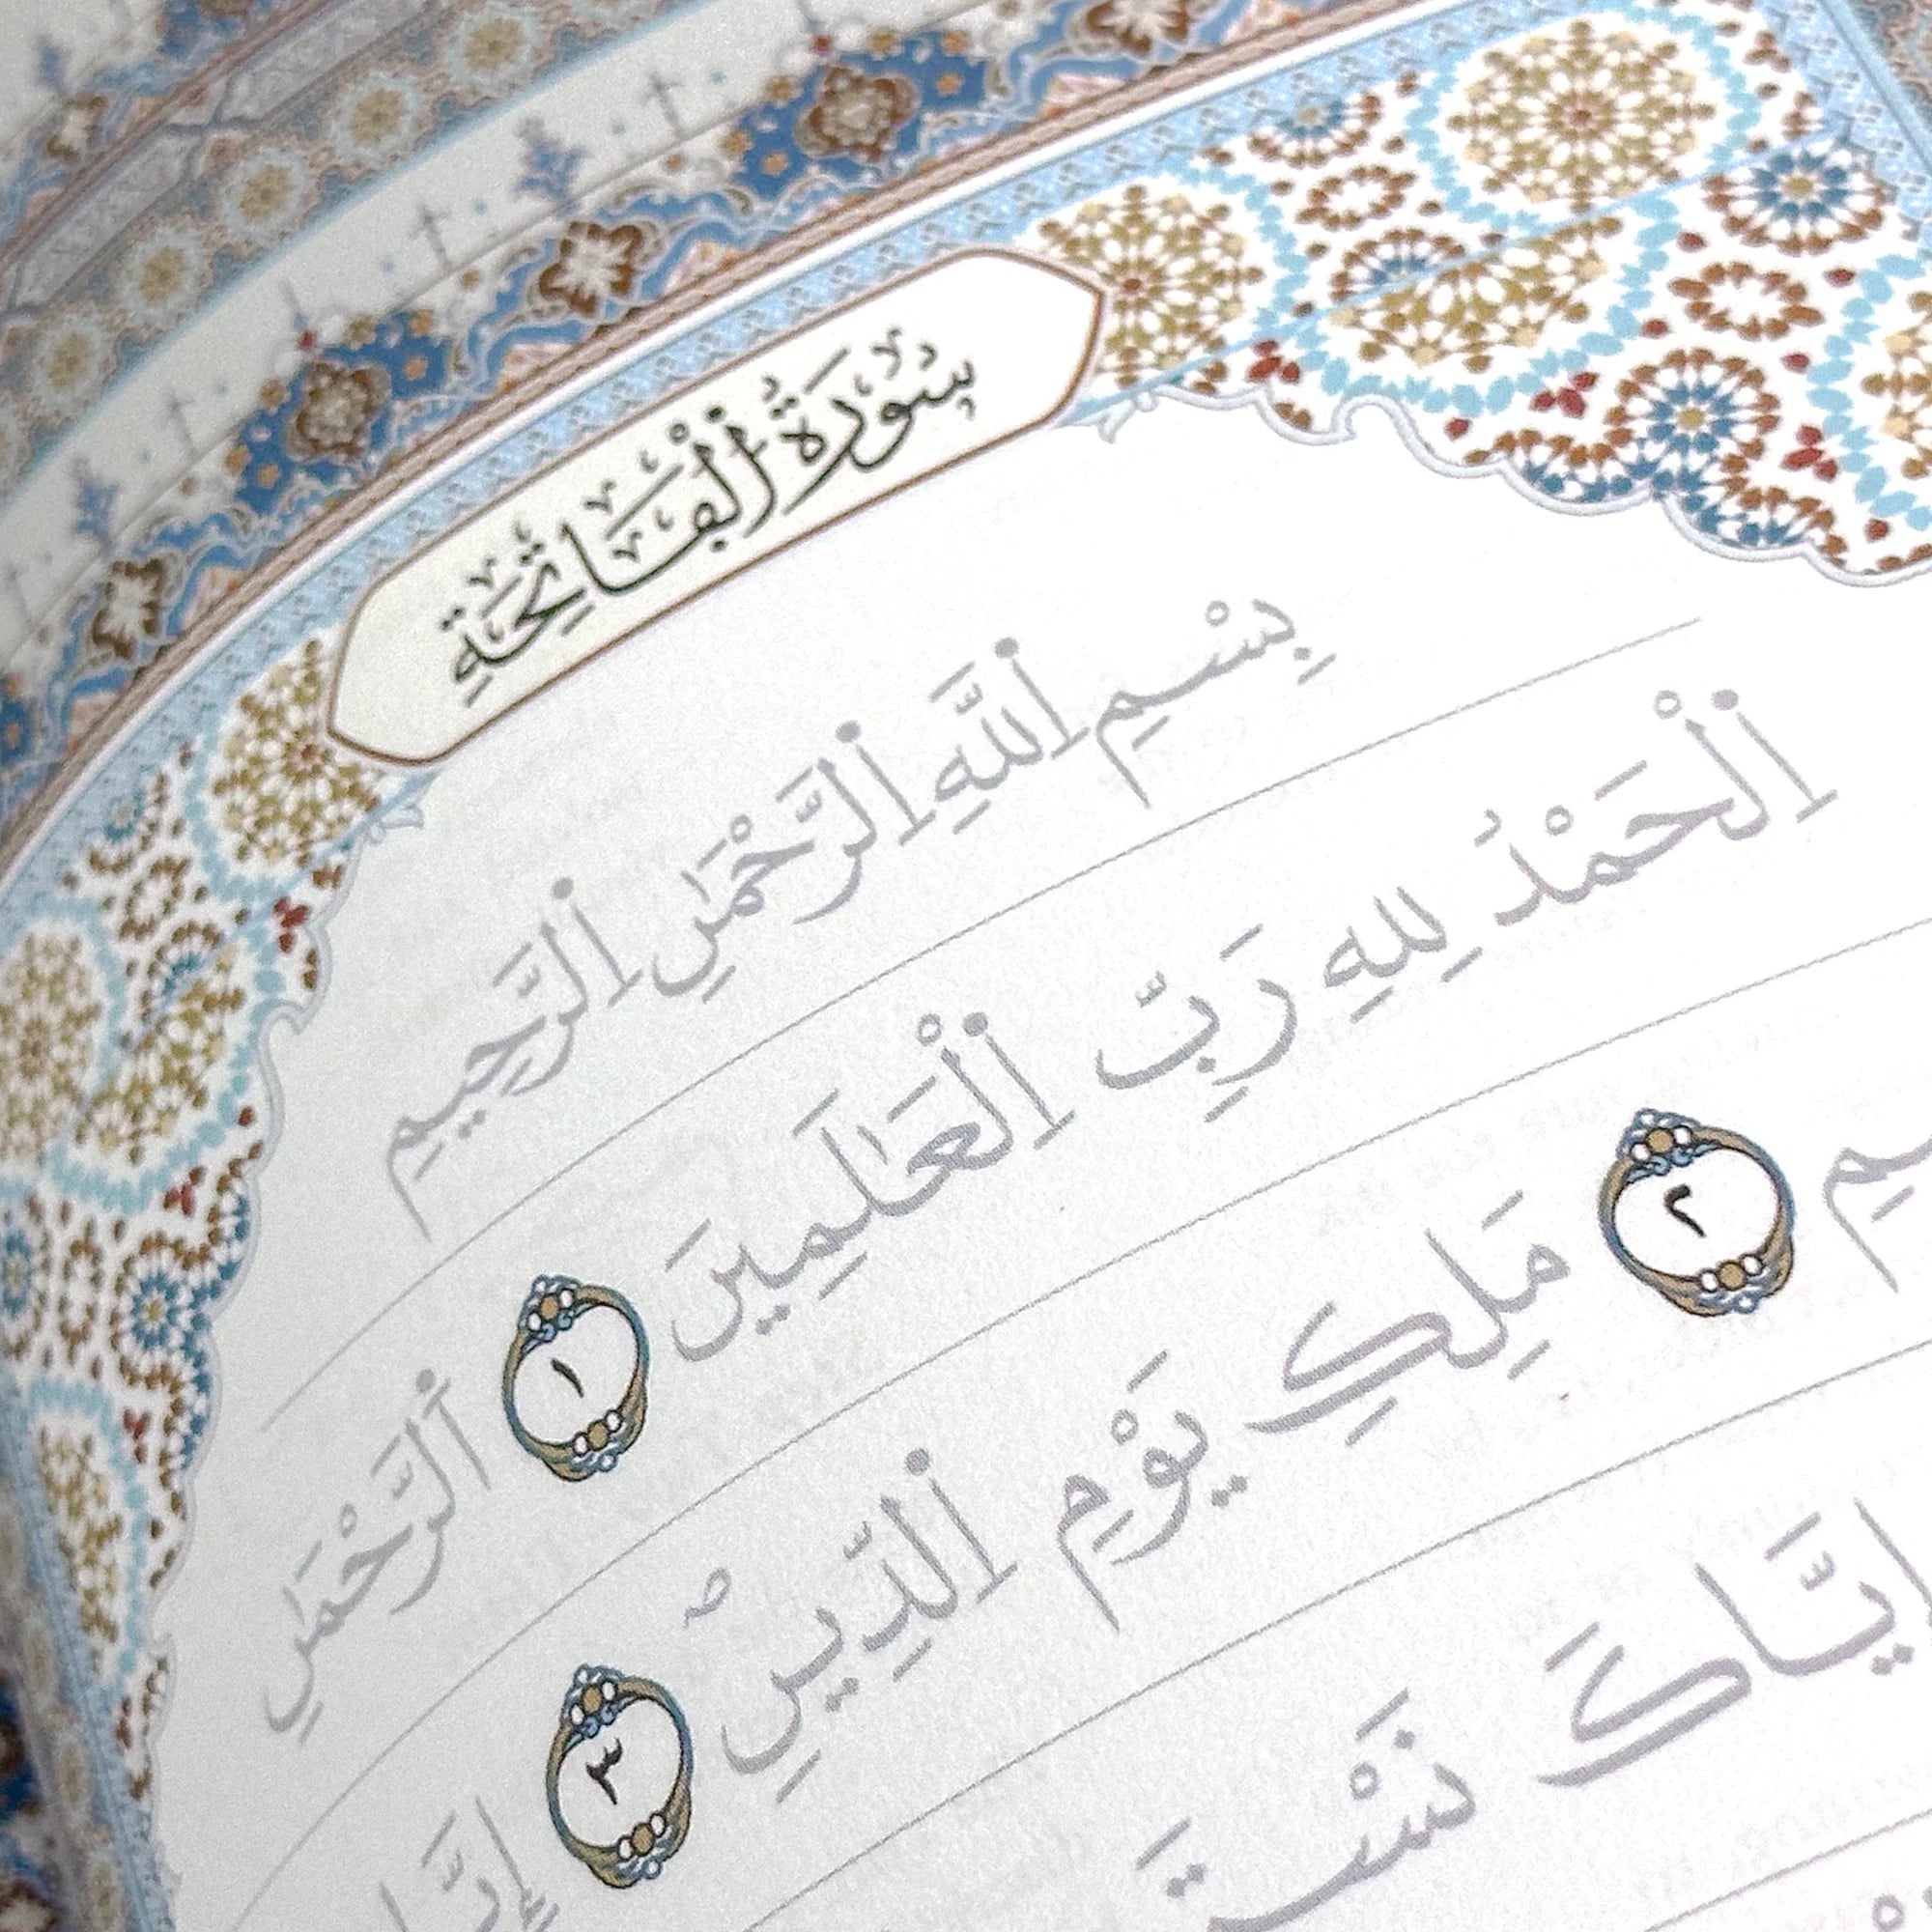 سُورَةُ اَ۬لْفَاتِحَةِ
بِسْمِ اِ۬للَّهِ اِ۬لرَّحْمَٰنِ اِ۬لرَّحِيمِ
اِ۬لْحَمْدُ لِلهِ رَبِّ اِ۬لْعَٰلَمِينَ ١ اَ۬لرَّحْمَٰنِ
٢ مَلِكِ يَوْمِ اِ۬لدِّينِۖ ٣ إِيَّا
إِيَّاكَ نَسْتَ